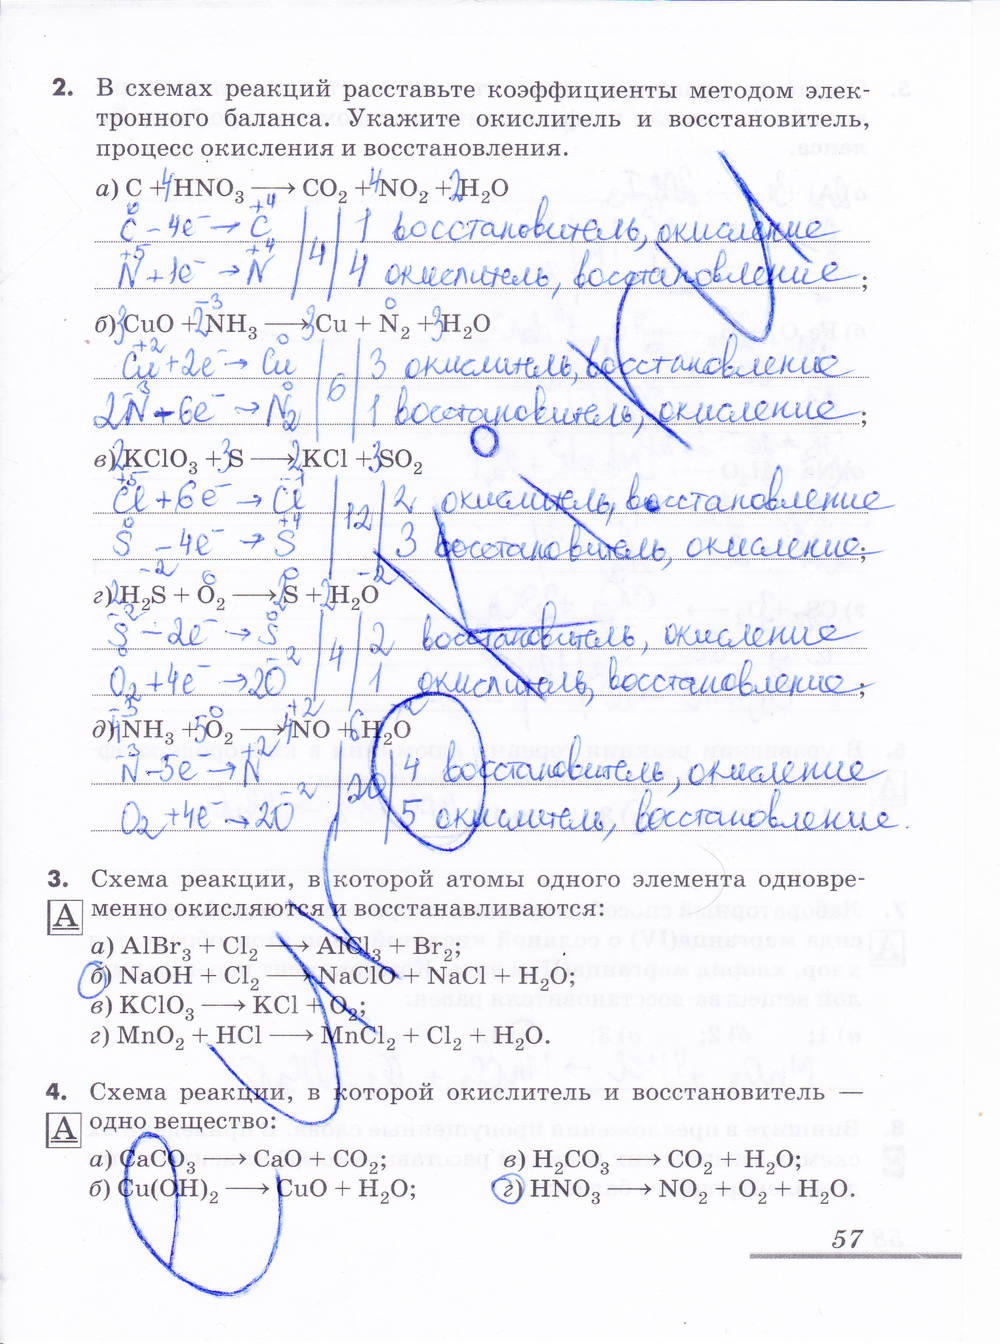 2. В схемах реакций расставьте коэффициенты методом элек-
тронного баланса. Укажите окислитель и восстановитель,
процесс окисления и восстановления.
а) C + 4HNO₃ ⟶ CO₂ + 4NO₂ + 2H₂O
C⁰ - 4e⁻ → C⁺⁴ | 4 | 1 восстановитель, окисление
N⁺⁵ + 1e⁻ → N⁺⁴ | 4 окислитель, восстановление;
б) 3CuO + 2N⁻³H₃ ⟶ 3Cu + N₂⁰ + 3H₂O
Cu⁺² + 2e⁻ → Cu⁰ | 6 | 3 окислитель, восстановление
2N⁻³ - 6e⁻ → N₂⁰ | 1 восстановитель, окисление;
в) 2KClO₃ + 3S ⟶ 2KCl + 3SO₂
Cl⁺⁵ + 6e⁻ → Cl⁻¹ | 12 | 2 окислитель, восстановление
S⁰ - 4e⁻ → S⁺⁴ | 3 восстановитель, окисление;
г) 2H₂S⁻² + O₂⁰ ⟶ 2S⁰ + 2H₂O⁻²
S⁻² - 2e⁻ → S⁰ | 4 | 2 восстановитель, окисление
O₂⁰ + 4e⁻ → 2O⁻² | 1 окислитель, восстановление;
д) 4N⁻³H₃ + 5O₂⁰ ⟶ 4N⁺²O + 6H₂O⁻²
N⁻³ - 5e⁻ → N⁺² | 20 | 4 восстановитель, окисление
O₂ + 4e⁻ → 2O⁻² | 5 окислитель, восстановление.
3. Схема реакции, в которой атомы одного элемента одновре-
А менно окисляются и восстанавливаются:
а) AlBr₃ + Cl₂ ⟶ AlCl₃ + Br₂;
б) NaOH + Cl₂ ⟶ NaClO + NaCl + H₂O;
в) KClO₃ ⟶ KCl + O₂;
г) MnO₂ + HCl ⟶ MnCl₂ + Cl₂ + H₂O.
4. Схема реакции, в которой окислитель и восстановитель —
А одно вещество:
а) CaCO₃ ⟶ CaO + CO₂; в) H₂CO₃ ⟶ CO₂ + H₂O;
б) Cu(OH)₂ ⟶ CuO + H₂O; г) HNO₃ ⟶ NO₂ + O₂ + H₂O.
57